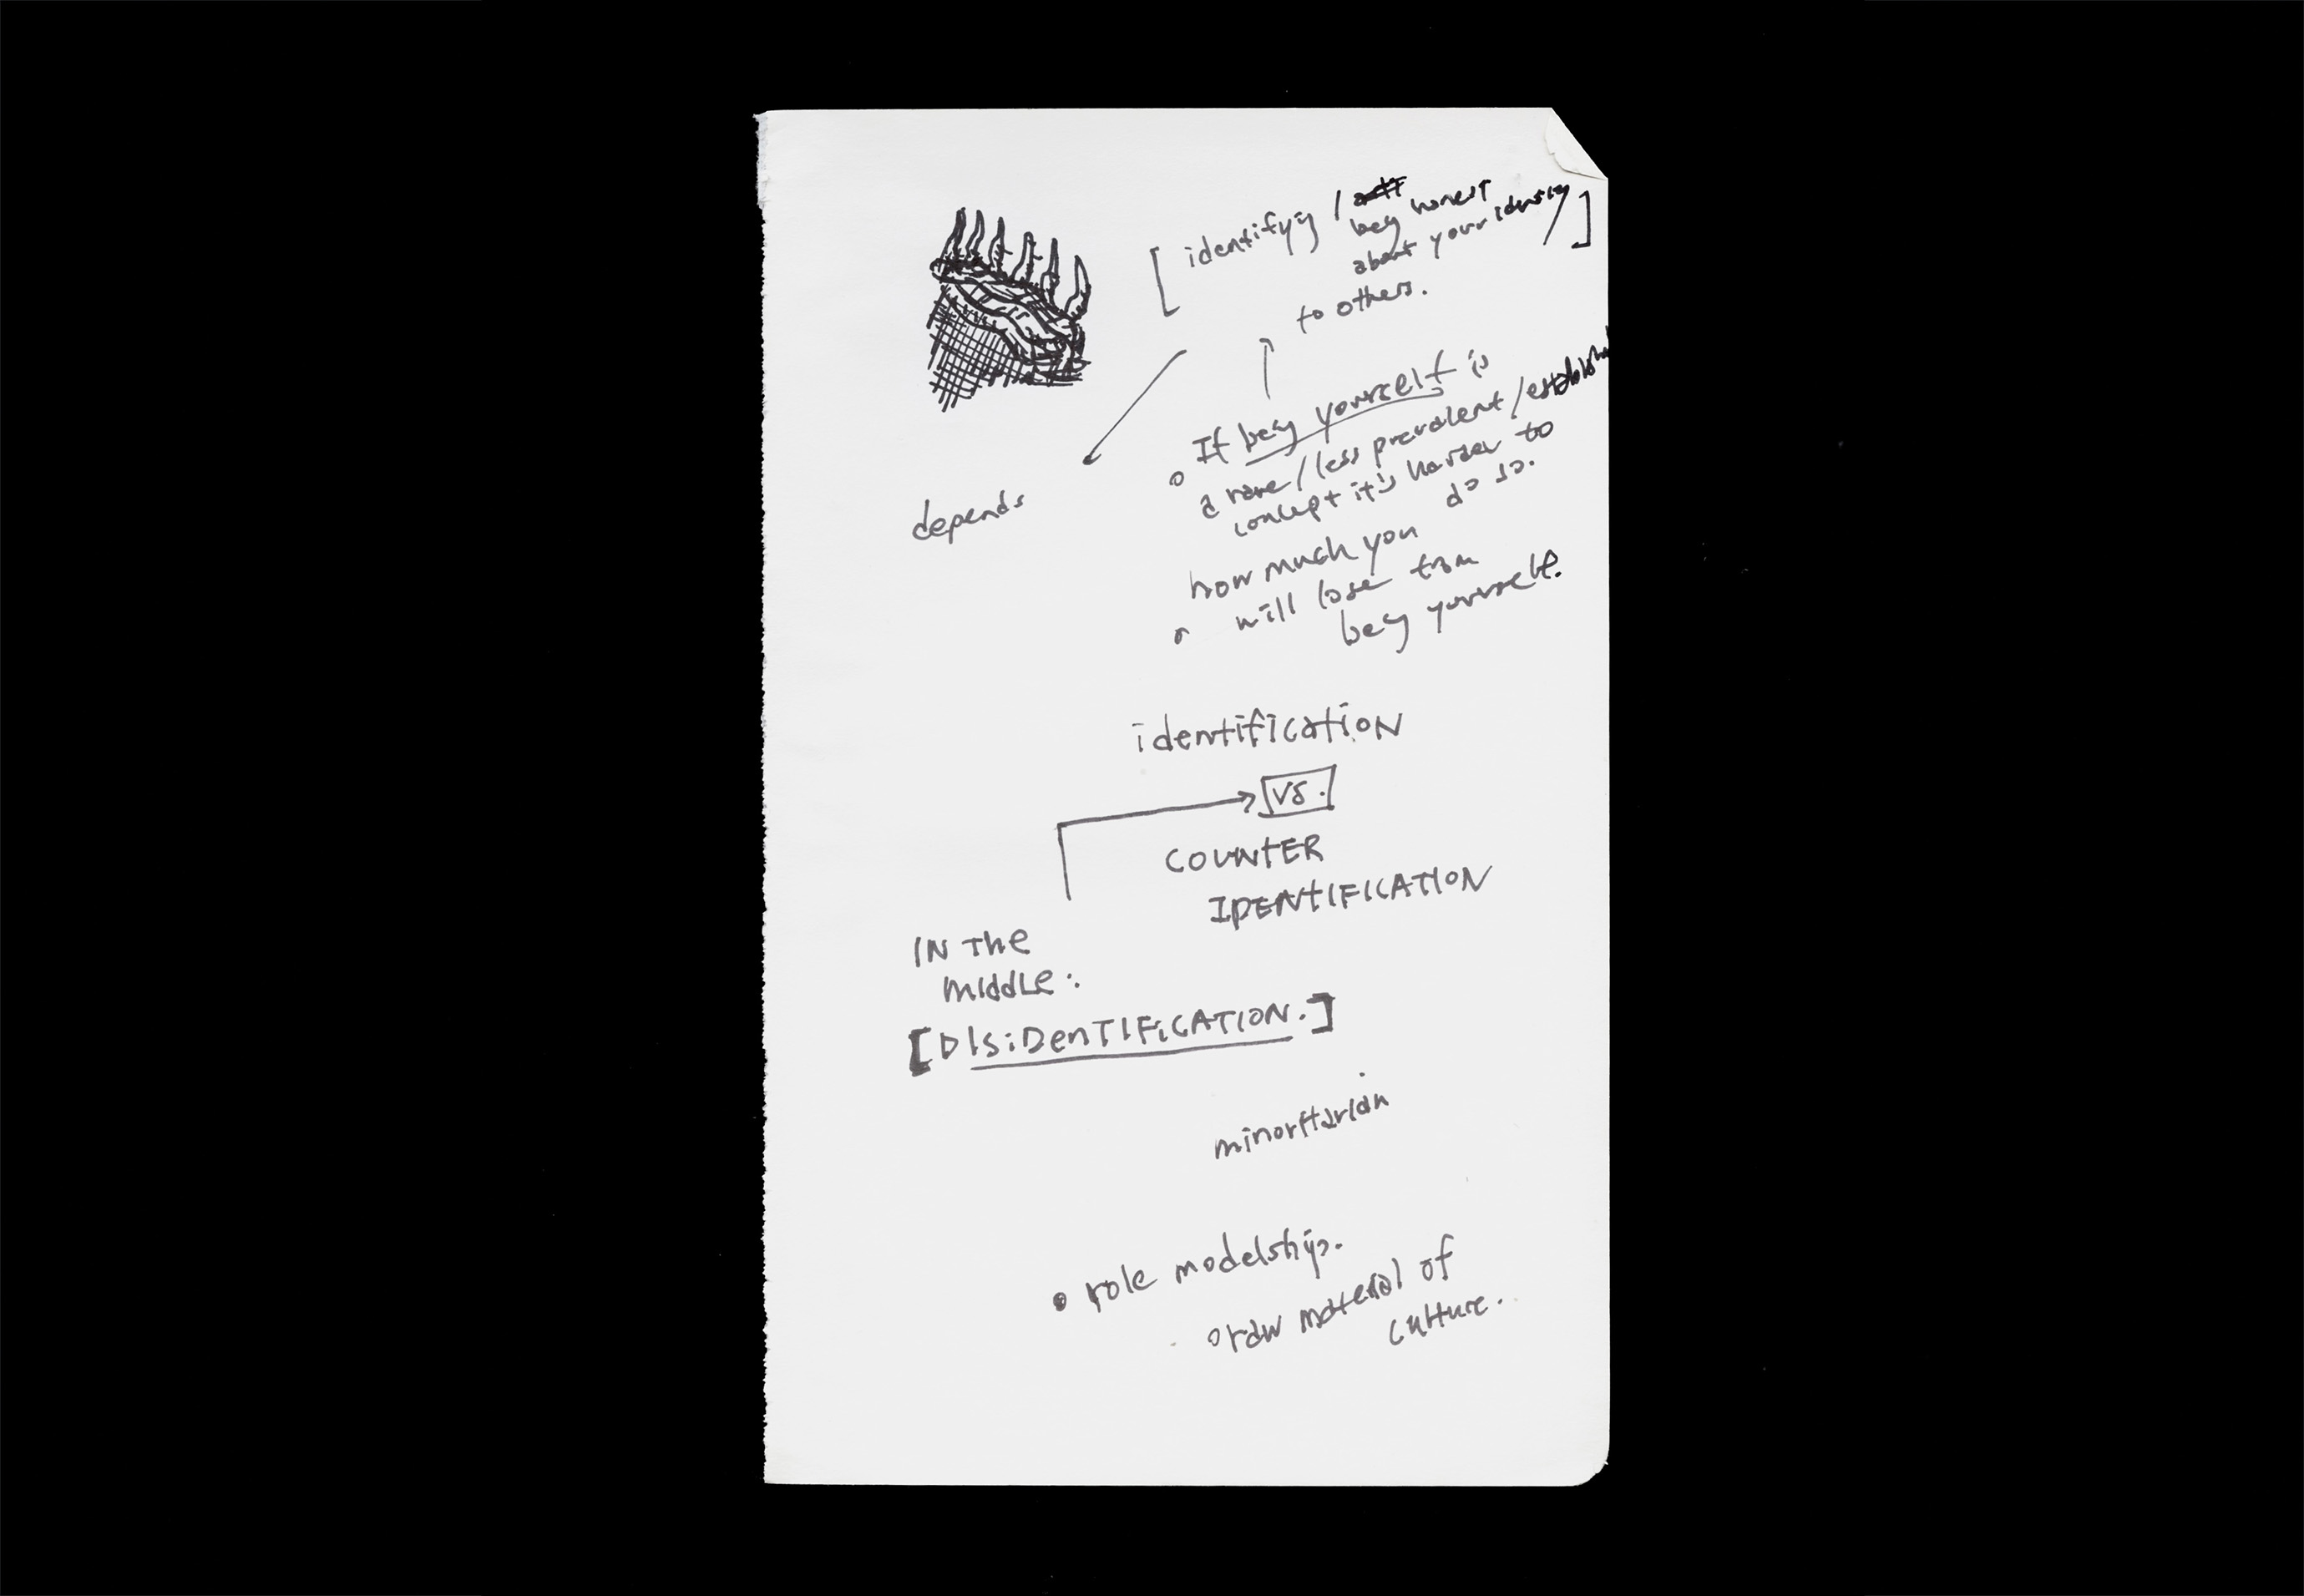 [ identifyg /
beg honest
about your identity / ]
to others.
If beg yourself is
a rare / less prevalent /
concept it's harder to
do so.
depends
how much you
will lose from
beg yourself.
identification
vs.
COUNTER
IDENTIFICATION
IN The
middle:
[DISiDenTIFiCATION.]
minoritarian
role modelship.
raw material of
culture.